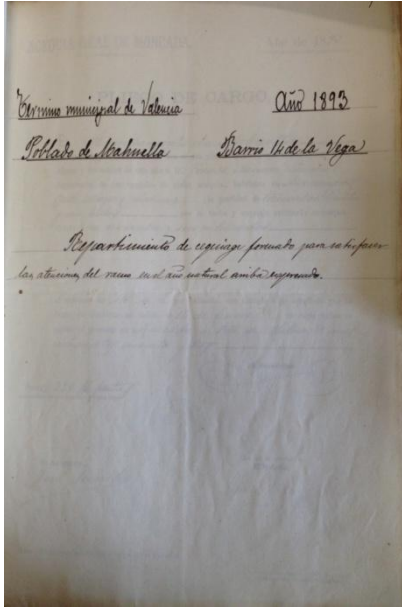 Término municipal de Valencia
Año 1893
Poblado de Mahuella
Barrio 14 de la Vega
Repartimiento de cequiage formado para satisfacer
las atenciones del ramo en el año natural arriba expresado.
PLIEGO DE CARGO